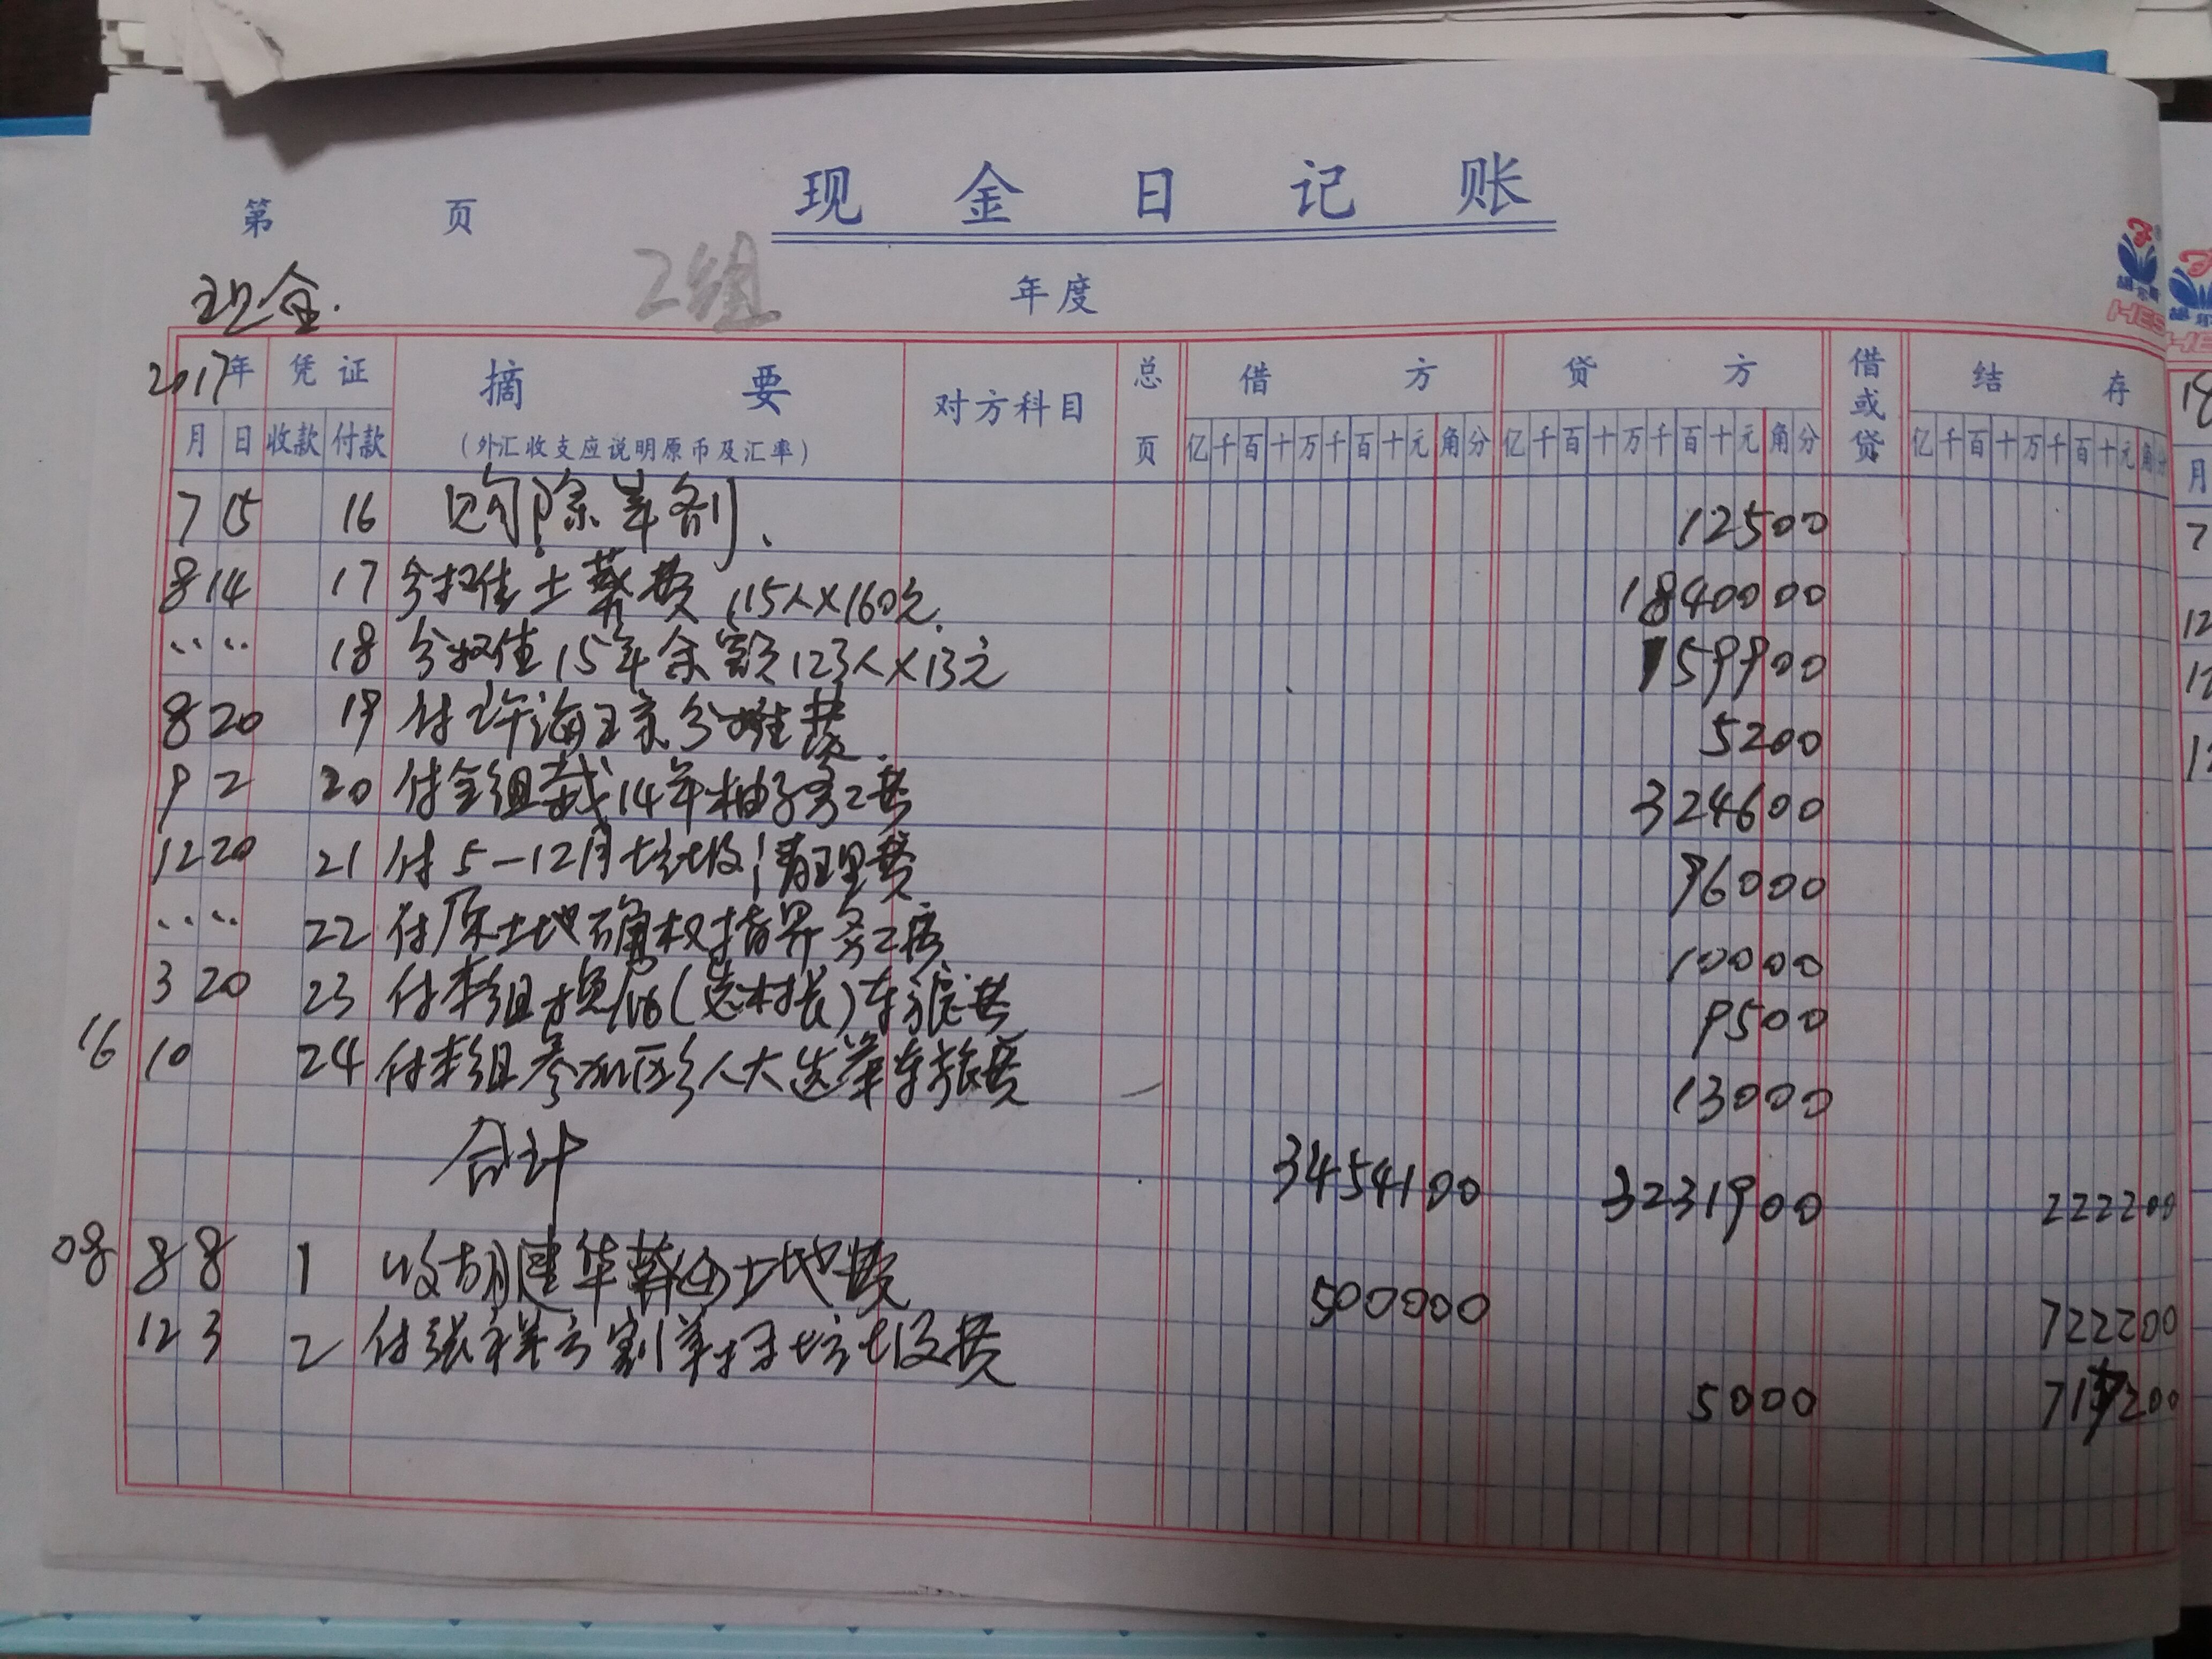 现金日记账
第 页
2组
年度
现金.
2017年 凭证 摘要 对方科目 总页 借方 贷方 借或贷 结存
月 日 收款 付款 (外汇收支应说明原币及汇率) 亿千百十万千百十元角分 亿千百十万千百十元角分 亿千百十万千百十元角分
7 15 16 购除草剂、 12500
8 14 17 分摊土葬费 115人×160元. 1840000
〃 〃 18 分摊 15年余额123人×13元 159900
8 20 19 付许海 京分摊费 5200
9 2 20 付全组栽14年柚子务工费 324600
12 20 21 付5-12月垃圾清理费 96000
〃 〃 22 付原土地确权指界务工费 10000
3 20 23 付本组换届(选村长)车旅费 9500
16 10 24 付本组参加区乡人大选举车旅费 13000
合计 3454100 3231900 222200
08 8 8 1 收胡建华葬母土地费 500000 722200
12 3 2 付张祥云割草扫垃圾费 5000 717200